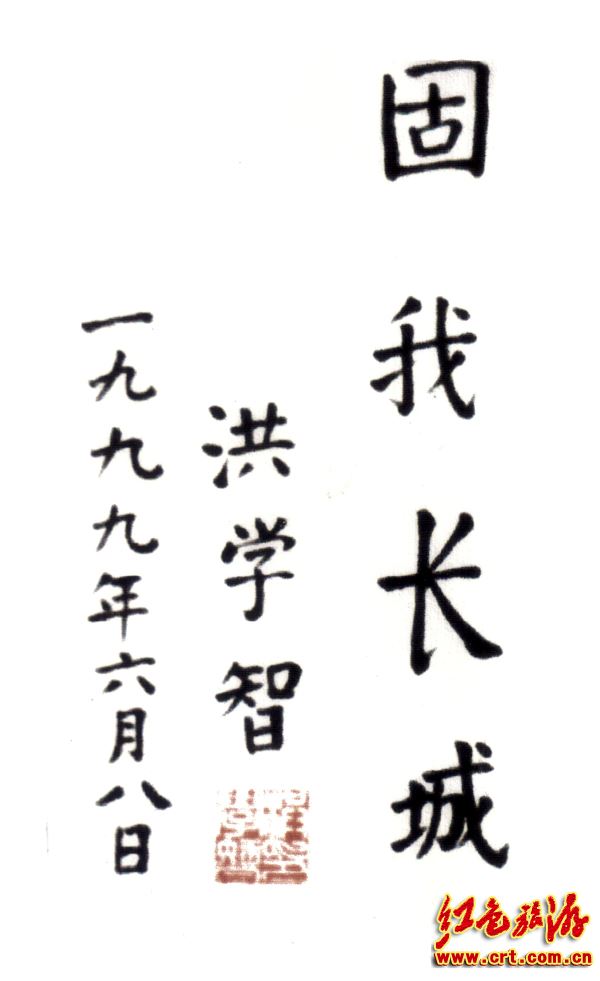 固我长城
洪学智
一九九九年六月八日
红色旅游
www.crt.com.cn